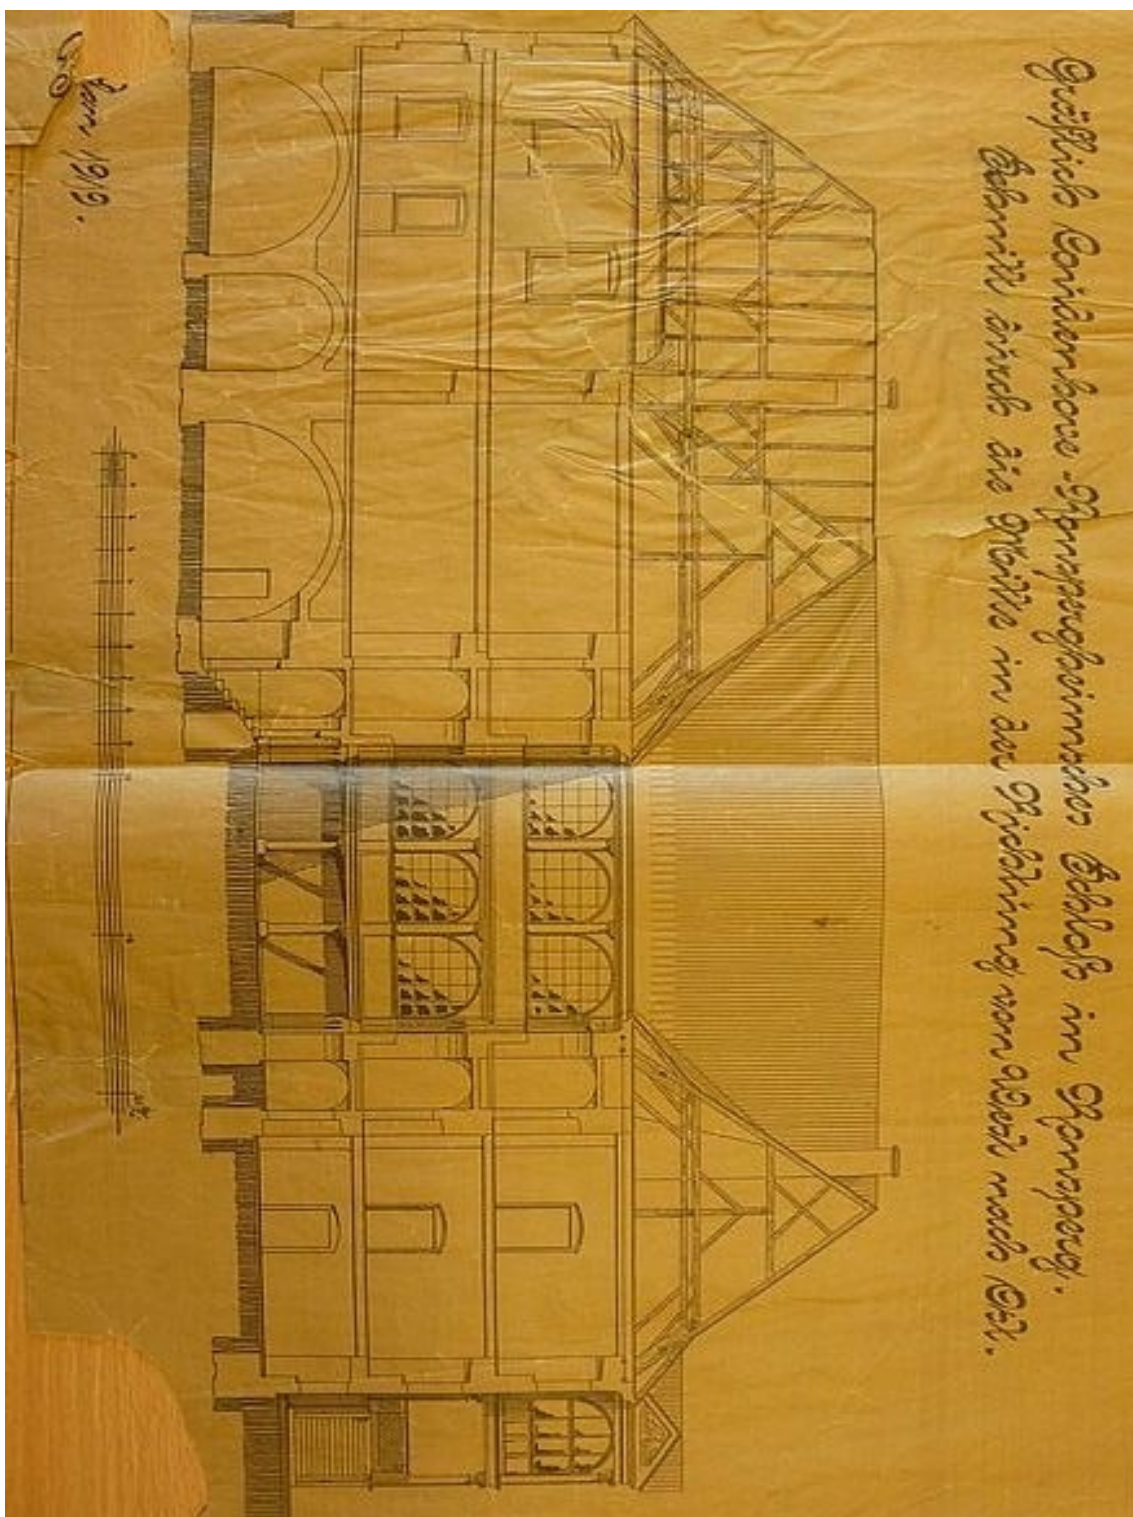 Gräflich Coudenhove-Ronspergheimsches Schloß in Ronsperg.
Schnitt durch die Mitte in der Richtung von West nach Ost.
1919.